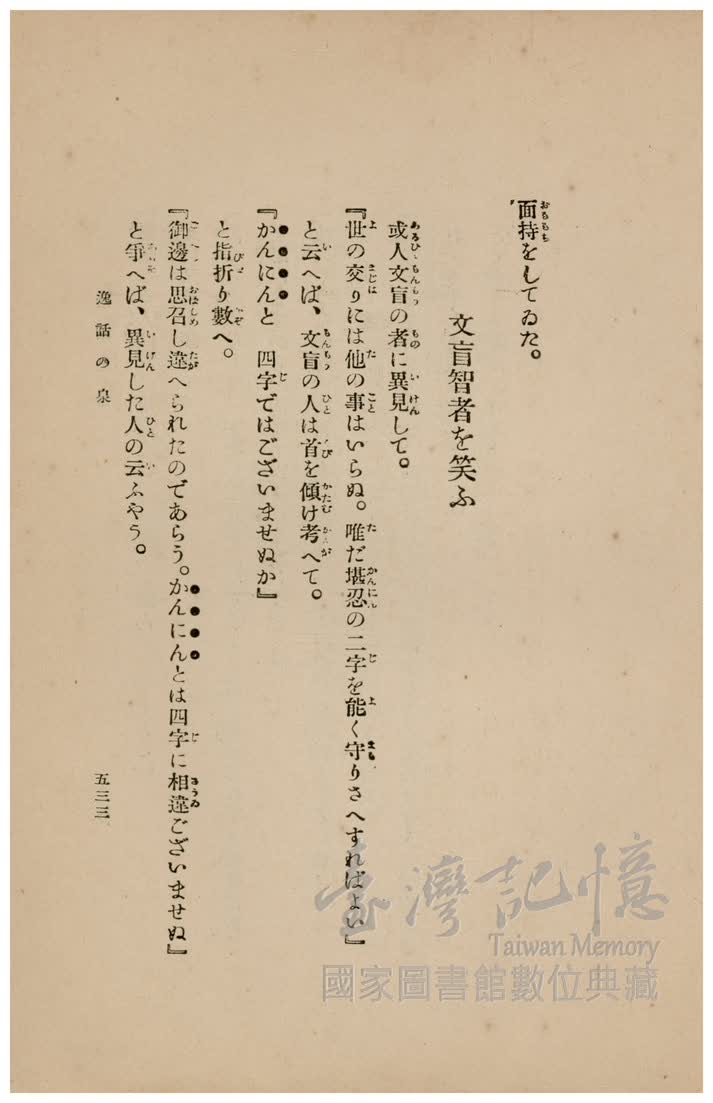 面持をしてゐた。
文盲智者を笑ふ
或人文盲の者に異見して。
『世の交りには他の事はいらぬ。唯だ堪忍の二字を能く守りさへすればよい』
と云へば、文盲の人は首を傾け考へて。
『かんにんと 四字ではございませぬか』
と指折り數へ。
『御邊は思召し違へられたのであらう。かんにんとは四字に相違ございませぬ』
と爭へば、異見した人の云ふやう。
逸話の泉
五三三
臺灣記憶
Taiwan Memory
國家圖書館數位典藏